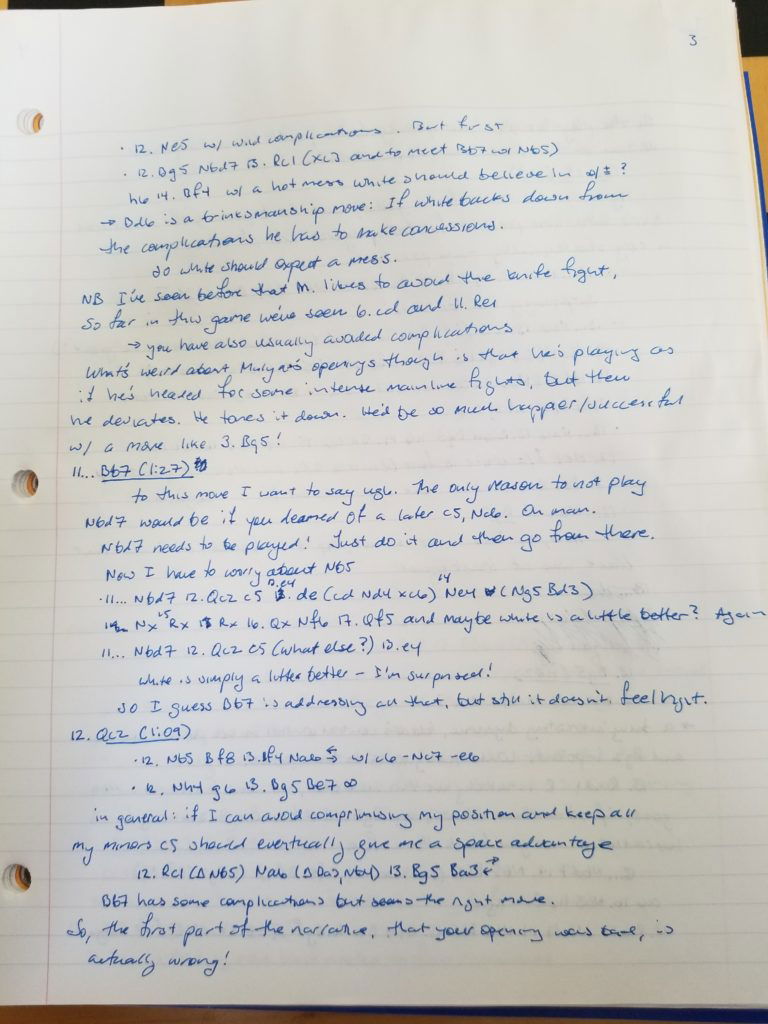 3
· 12. Ne5 w/ wild complications. But first
· 12. Bg5 Nbd7 13. Rc1 (xc7 and to meet Bb7 w/ Nb5)
h6 14. Bf4 w/ a hot mess white should believe in ∞/± ?
→ Bd6 is a brinksmanship move: If white backs down from
the complications he has to make concessions.
So white should expect a mess.
NB I've seen before that M. likes to avoid the knife fight,
So far in this game we've seen 6. cd and 11. Re1
→ you have also usually avoided complications
What's weird about openings though is that he's playing as
if he's headed for some intense mainline fights, but then
he deviates. He tones it down. He'd be so much happier/successful
w/ a move like 3. Bg5!
11... Bb7 (1:27)
to this move I want to say ugh. The only reason to not play
Nbd7 would be if you dreamed of a later c5, Nc6. Oh man.
Nbd7 needs to be played! Just do it and then go from there.
Now I have to worry about Nb5
· 11... Nbd7 12. Qc2 c5 13. de (cd Nd4 xc6) 14 Ne4 (Ng5 Bd3)
Nx 15 Rx Rx 16. Qx Nf6 17. Qf5 and maybe white is a little better? Again
11... Nbd7 12. Qc2 c5 (what else?) 13. e4
white is simply a little better – I'm surprised!
So I guess Bb7 is addressing all that, but still it doesn't feel right.
12. Qc2 (1:09)
· 12. Nb5 Bf8 13. Bf4 Na6 ⇆ w/ c6 -Nc7 -e6
· 12. Nh4 g6 13. Bg5 Be7 ∞
in general: if I can avoid compromising my position and keep all
my minors c5 should eventually give me a space advantage
12. Rc1 (Δ Nb5) Na6 (Δ Ba3, Nb4) 13. Bg5 Ba3 ⇄
Bb7 has some complications but seems the right move.
So, the first part of the narrative, that your opening was , is
actually wrong!